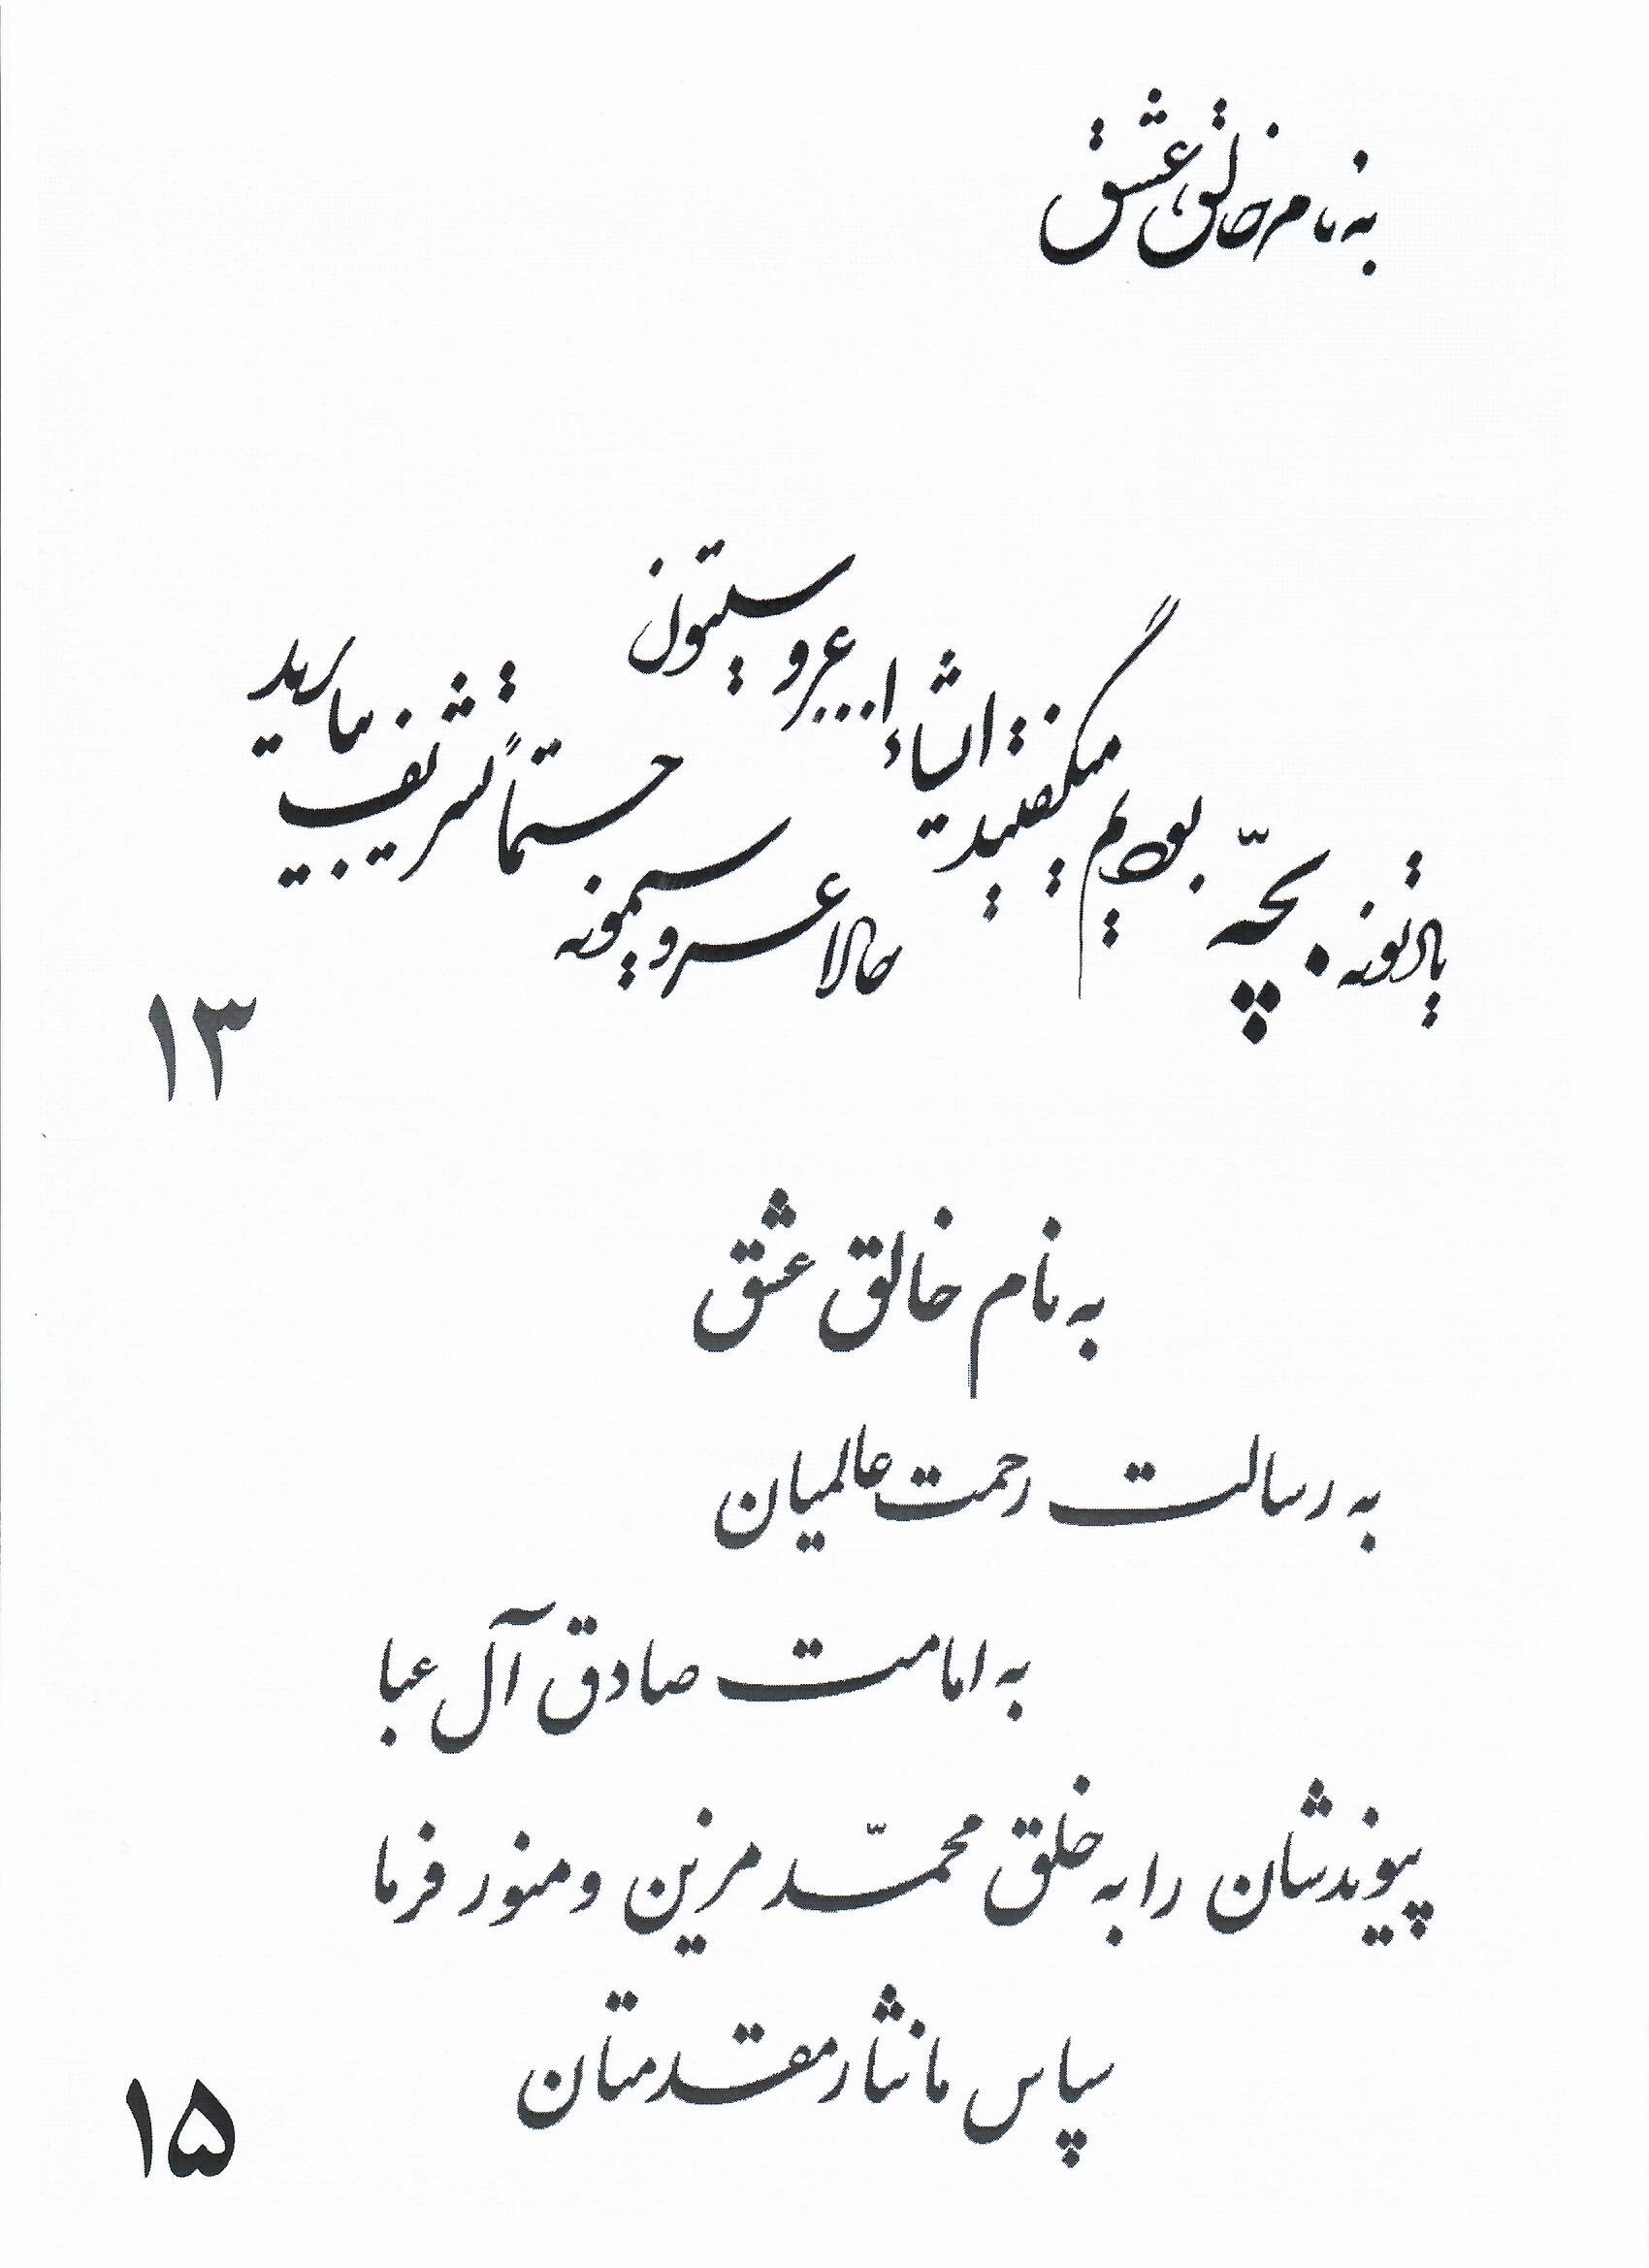 به نام خالق عشق
یادتونه بچّه بودیم میگفتید انشاءا... عروسیتون
حالا عروسیمونه حتماً تشریف بیارید
۱۳
به نام خالق عشق
به رسالت رحمت عالمیان
به امامت صادق آل عبا
پیوندشان را به خلق محمّد مزین و منور فرما
سپاس ما نثار مقدمتان
۱۵